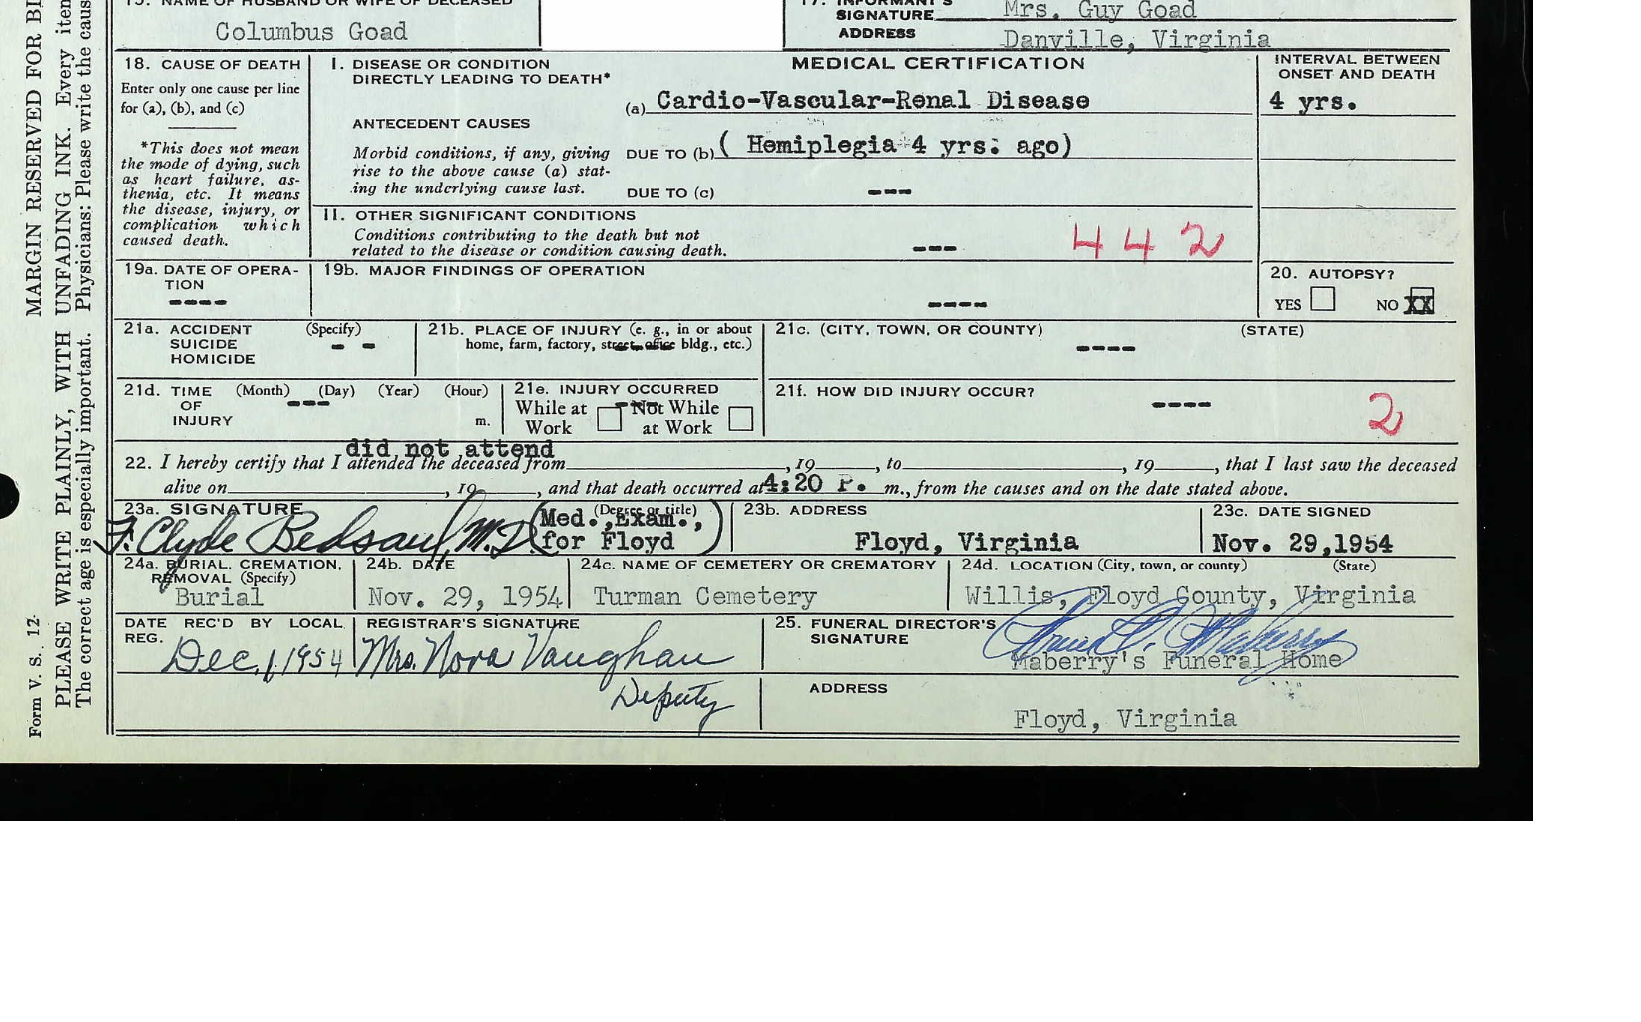 15. NAME OF HUSBAND OR WIFE OF DECEASED
Columbus Goad
17. INFORMANT'S SIGNATURE Mrs. Guy Goad
ADDRESS Danville, Virginia
MARGIN RESERVED FOR
PLEASE WRITE PLAINLY, WITH UNFADING INK. Every item
The correct age is especially important. Physicians: Please write the
Form V. S. 12
18. CAUSE OF DEATH
Enter only one cause per line
for (a), (b), and (c)
*This does not mean
the mode of dying, such
as heart failure, as-
thenia, etc. It means
the disease, injury, or
complication which
caused death.
MEDICAL CERTIFICATION
I. DISEASE OR CONDITION
DIRECTLY LEADING TO DEATH*
(a) Cardio-Vascular-Renal Disease
INTERVAL BETWEEN
ONSET AND DEATH
4 yrs.
ANTECEDENT CAUSES
Morbid conditions, if any, giving
rise to the above cause (a) stat-
ing the underlying cause last.
DUE TO (b) ( Hemiplegia 4 yrs. ago)
DUE TO (c) ---
II. OTHER SIGNIFICANT CONDITIONS
Conditions contributing to the death but not
related to the disease or condition causing death.
---
442
19a. DATE OF OPERA-
TION
----
19b. MAJOR FINDINGS OF OPERATION
----
20. AUTOPSY?
YES NO XX
21a. ACCIDENT (Specify)
SUICIDE - -
HOMICIDE
21b. PLACE OF INJURY (e. g., in or about
home, farm, factory, street, office bldg., etc.)
21c. (CITY, TOWN, OR COUNTY) (STATE)
----
21d. TIME (Month) (Day) (Year) (Hour)
OF ---
INJURY m.
21e. INJURY OCCURRED
While at Not While
Work at Work
21f. HOW DID INJURY OCCUR?
----
2
did not attend
22. I hereby certify that I attended the deceased from , 19 , to , 19 , that I last saw the deceased
alive on , 19 , and that death occurred at 4:20 P. m., from the causes and on the date stated above.
23a. SIGNATURE (Degree or title)
F. Clyde Bedsaul, M.D. (Med. Exam.,
for Floyd )
23b. ADDRESS
Floyd, Virginia
23c. DATE SIGNED
Nov. 29,1954
24a. BURIAL, CREMATION,
REMOVAL (Specify)
Burial
24b. DATE
Nov. 29, 1954
24c. NAME OF CEMETERY OR CREMATORY
Turman Cemetery
24d. LOCATION (City, town, or county) (State)
Willis, Floyd County, Virginia
DATE REC'D BY LOCAL
REG.
Dec. 1, 1954
REGISTRAR'S SIGNATURE
Mrs. Nora Vaughan
Deputy
25. FUNERAL DIRECTOR'S
SIGNATURE
Maberry's Funeral Home
ADDRESS
Floyd, Virginia